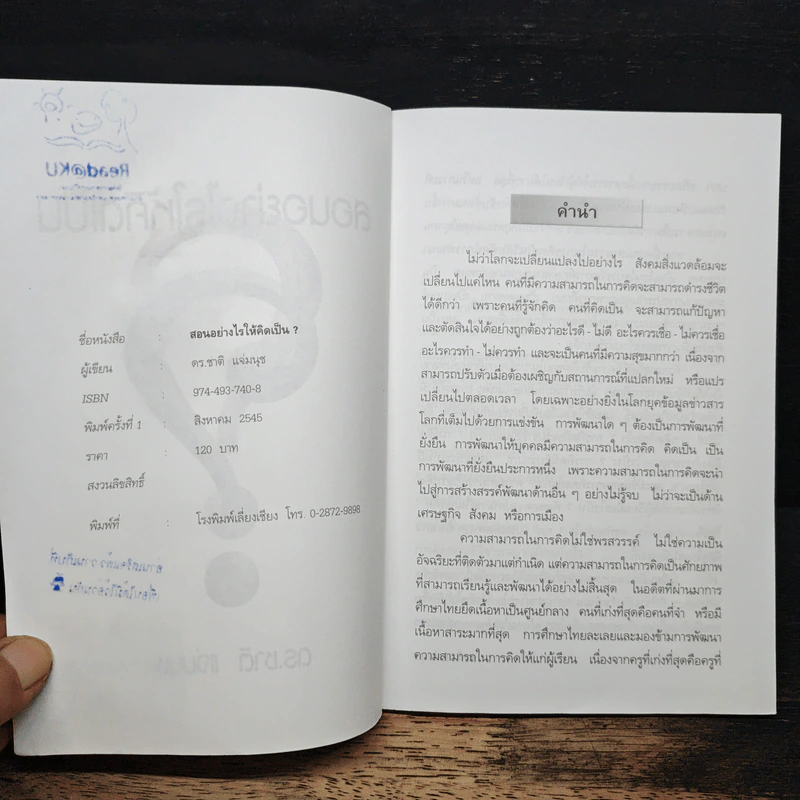 Read@KU
ชื่อหนังสือ : สอนอย่างไรให้คิดเป็น ?
ผู้เขียน : ดร.ชาติ แจ่มนุช
ISBN : 974-493-740-8
พิมพ์ครั้งที่ 1 : สิงหาคม 2545
ราคา : 120 บาท
สงวนลิขสิทธิ์
พิมพ์ที่ : โรงพิมพ์เลี่ยงเชียง โทร. 0-2872-9898
คำนำ
ไม่ว่าโลกจะเปลี่ยนแปลงไปอย่างไร สังคมสิ่งแวดล้อมจะ
เปลี่ยนไปแค่ไหน คนที่มีความสามารถในการคิดจะสามารถดำรงชีวิต
ได้ดีกว่า เพราะคนที่รู้จักคิด คนที่คิดเป็น จะสามารถแก้ปัญหา
และตัดสินใจได้อย่างถูกต้องว่าอะไรดี - ไม่ดี อะไรควรเชื่อ - ไม่ควรเชื่อ
อะไรควรทำ - ไม่ควรทำ และจะเป็นคนที่มีความสุขมากกว่า เนื่องจาก
สามารถปรับตัวเมื่อต้องเผชิญกับสถานการณ์ที่แปลกใหม่ หรือแปร
เปลี่ยนไปตลอดเวลา โดยเฉพาะอย่างยิ่งในโลกยุคข้อมูลข่าวสาร
โลกที่เต็มไปด้วยการแข่งขัน การพัฒนาใด ๆ ต้องเป็นการพัฒนาที่
ยั่งยืน การพัฒนาให้บุคคลมีความสามารถในการคิด คิดเป็น เป็น
การพัฒนาที่ยั่งยืนประการหนึ่ง เพราะความสามารถในการคิดจะนำ
ไปสู่การสร้างสรรค์พัฒนาด้านอื่น ๆ อย่างไม่รู้จบ ไม่ว่าจะเป็นด้าน
เศรษฐกิจ สังคม หรือการเมือง
ความสามารถในการคิดไม่ใช่พรสวรรค์ ไม่ใช่ความเป็น
อัจฉริยะที่ติดตัวมาแต่กำเนิด แต่ความสามารถในการคิดเป็นศักยภาพ
ที่สามารถเรียนรู้และพัฒนาได้อย่างไม่สิ้นสุด ในอดีตที่ผ่านมาการ
ศึกษาไทยยึดเนื้อหาเป็นศูนย์กลาง คนที่เก่งที่สุดคือคนที่จำ หรือมี
เนื้อหาสาระมากที่สุด การศึกษาไทยละเลยและมองข้ามการพัฒนา
ความสามารถในการคิดให้แก่ผู้เรียน เนื่องจากครูที่เก่งที่สุดคือครูที่